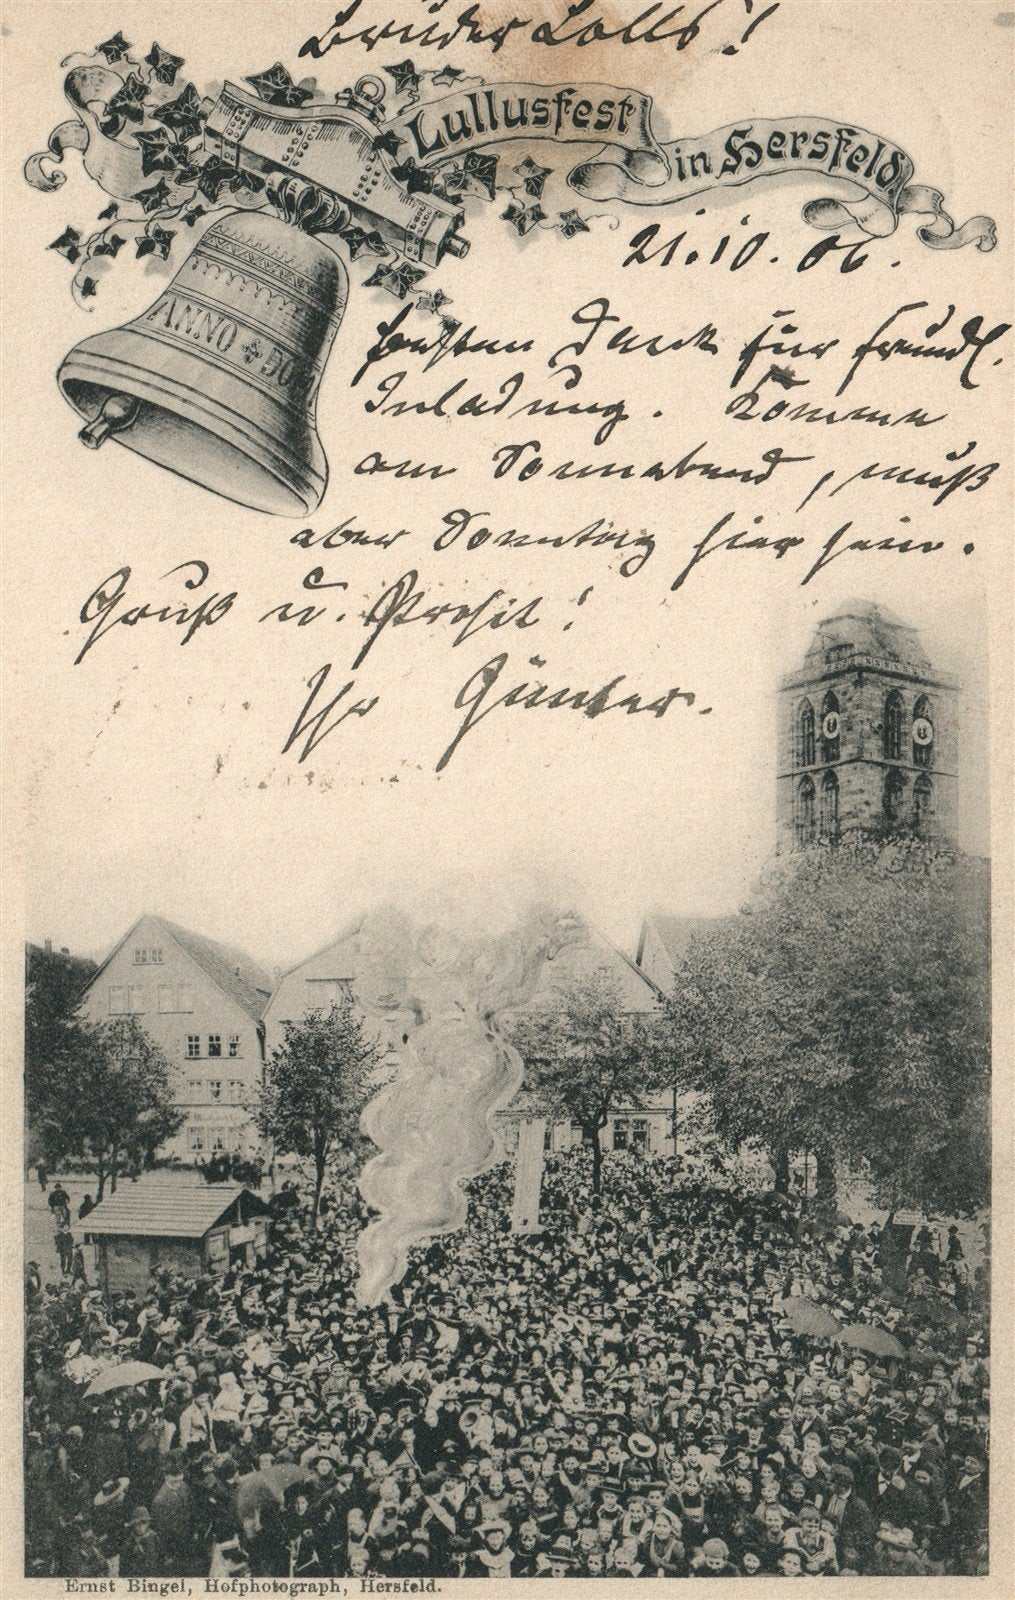 Bruder Lolls!
Lullusfest
in Hersfeld
21.10.06.
ANNO DOM
besten Dank für freundl.
Inladung. Komme
am Sonnabend, muß
aber Sonntag hier sein.
Gruß u. Prosit!
Ihr Günter.
Ernst Bingel, Hofphotograph, Hersfeld.